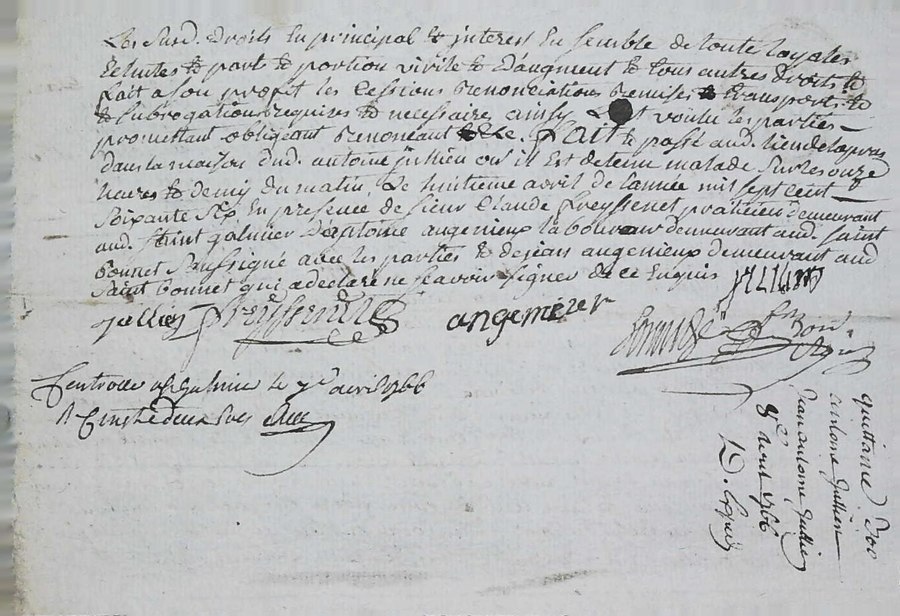 Les susd. droits en principal & interest Ensemble de toute loyales
& part & portion virile & d'augment & tous autres droits &
fait a son profit les cessions renonciations remises & transports &
& subrogations requises & necessaires ainsy voulu les parties
promettant obligeant renonceant &c. fait & passé aud. lieu
dans la maison dud. antoine jullien ou il Est detenu malade sur les onze
heures & demy du matin Le huitieme avril de l'année mil sept cent
soixante six En presence de sieur Claude freyssenet praticien demeurant
aud. saint galmier & antoine angenieux laboureur demeurant aud. saint
bonnet Soussigné avec les parties & de jean angenieux demeurant aud
saint bonnet qui a declaré ne scavoir signer de ce Enquis jullien
jullien freyssenet angenieur
Controllé a St galmier le avril 1766
R Cinquante deux sols
quittance
antoine Jullien
Jean antoine Jullien
8 avril 1766